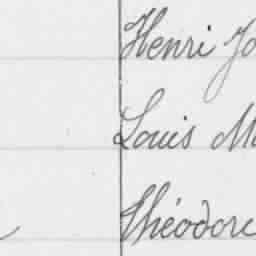 Henri Jo
Louis Ma
Théodore